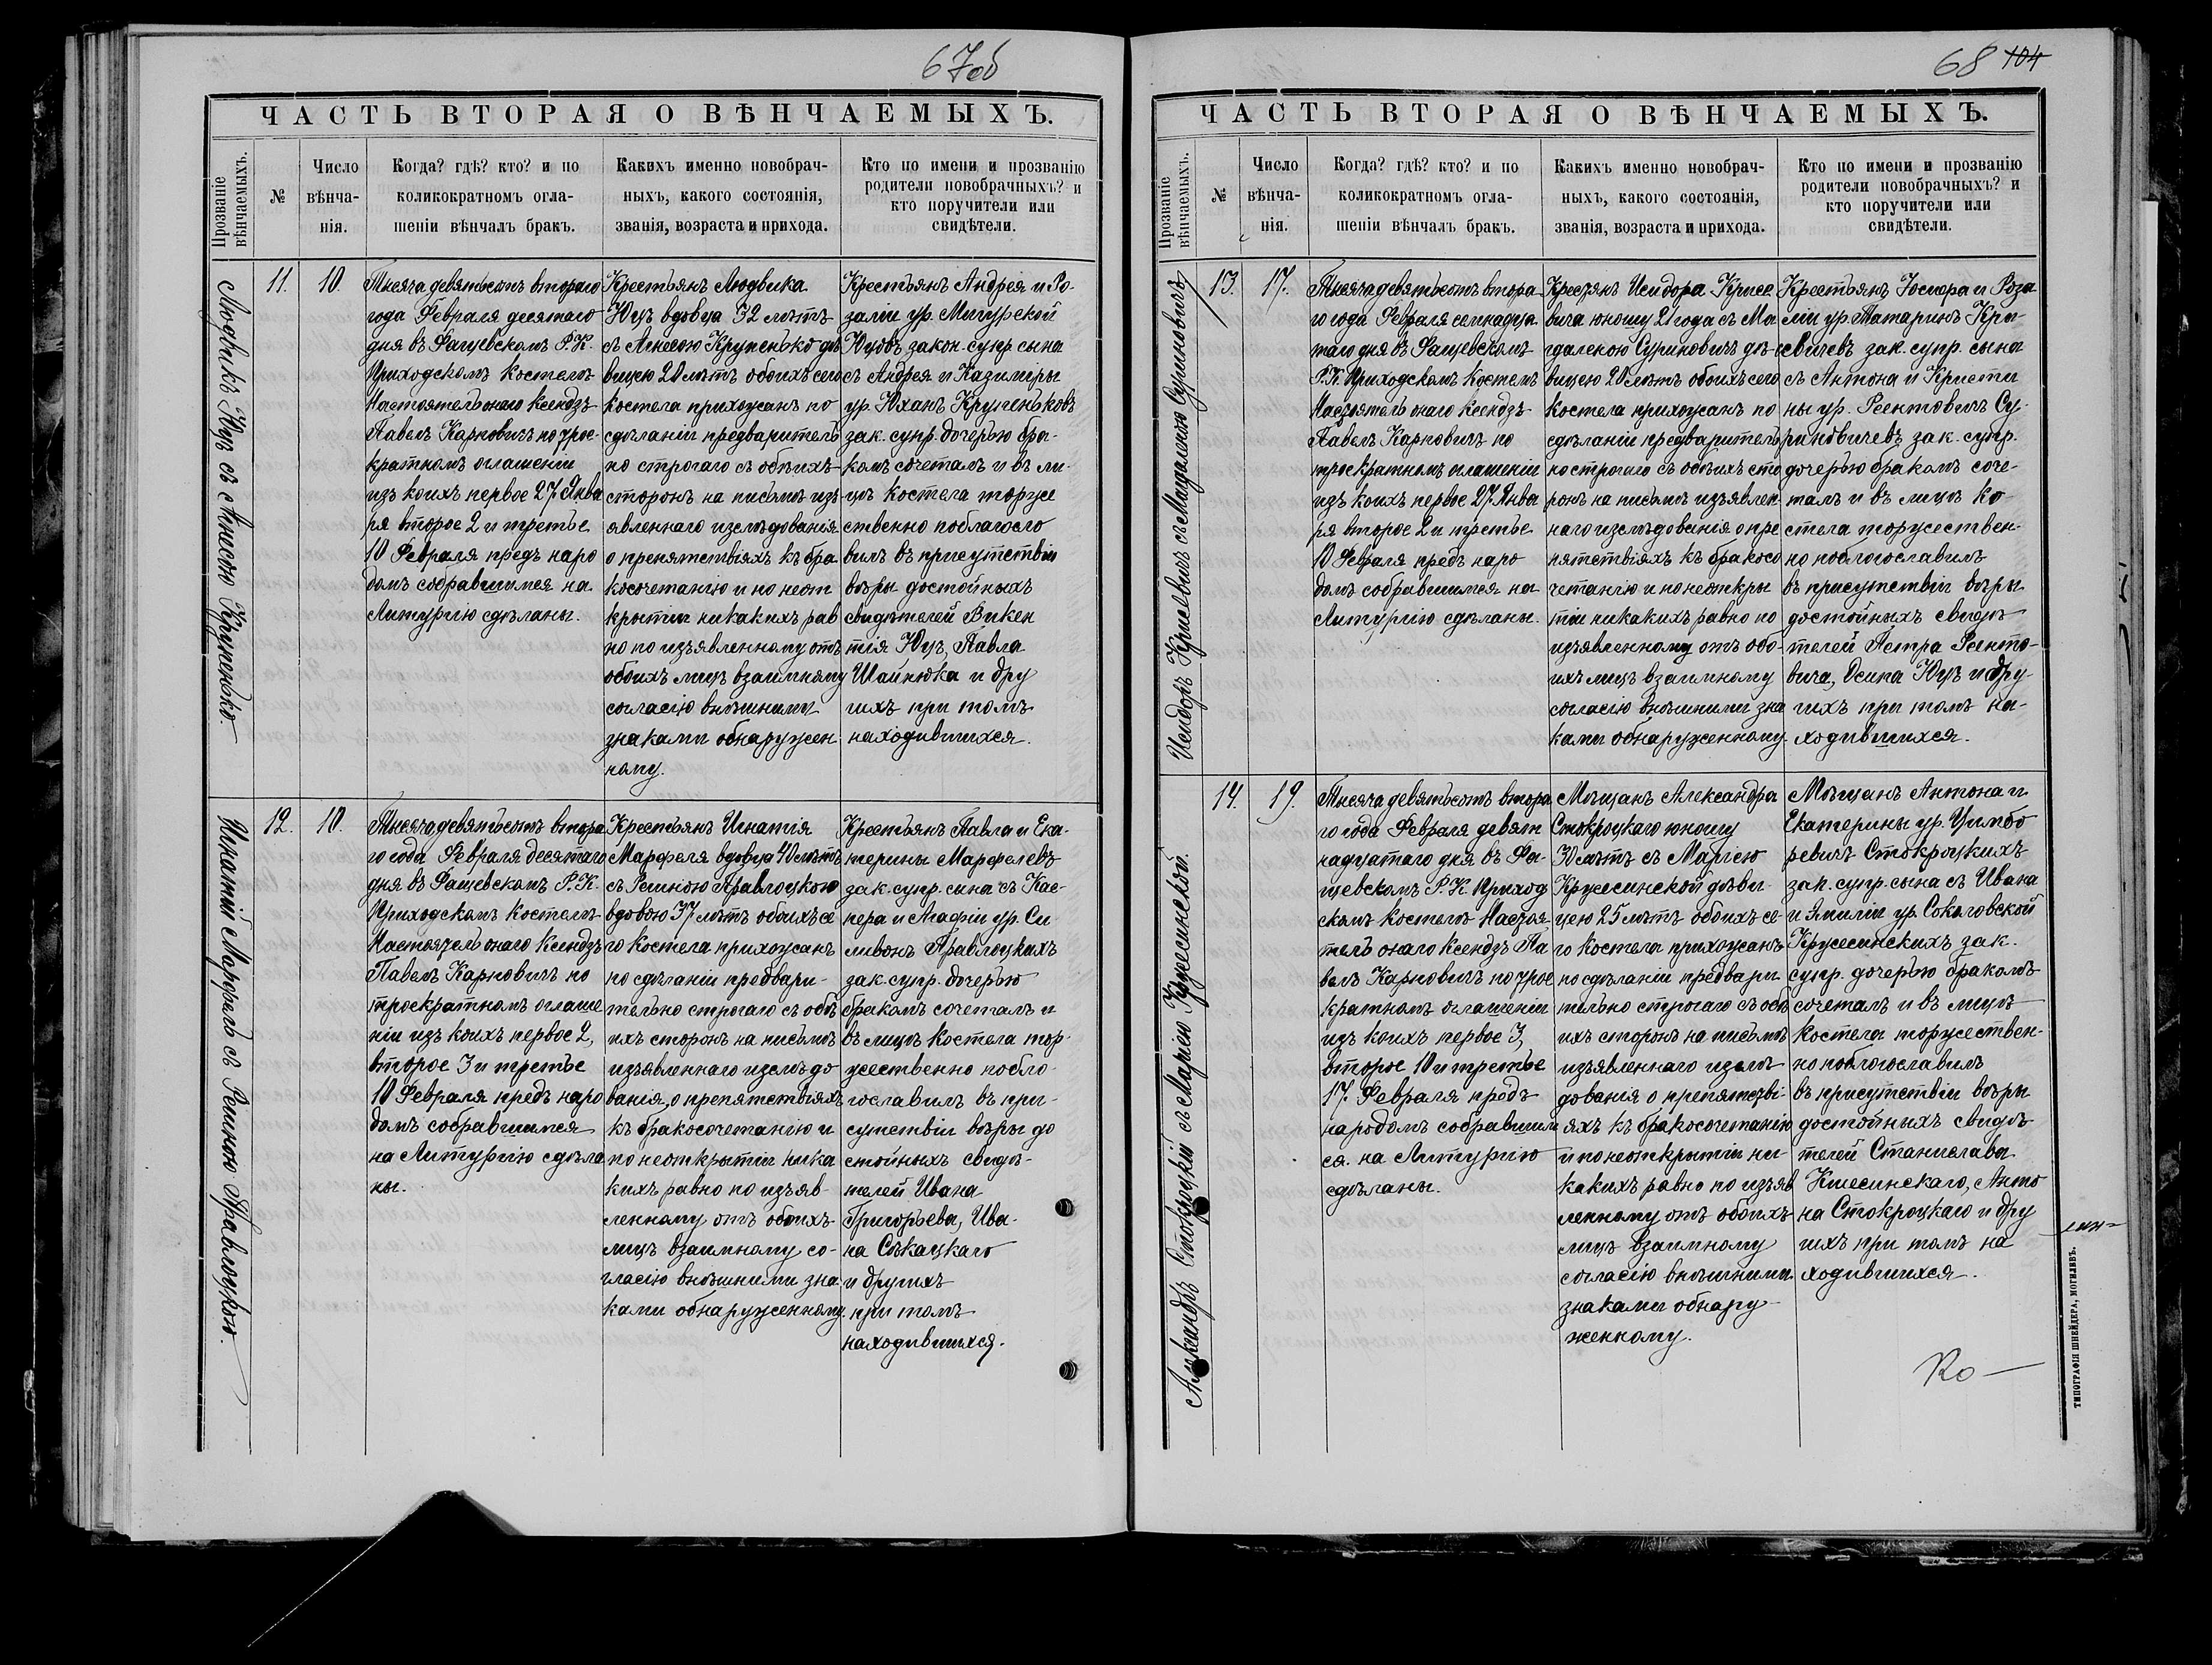 67об
ЧАСТЬ ВТОРАЯ О ВѢНЧАЕМЫХЪ.
Прозваніе
вѣнчаемыхъ.
№
Число
вѣнча-
нія.
Когда? гдѣ? кто? и по
коликократномъ огла-
шеніи вѣнчалъ бракъ.
Какихъ именно новобрач-
ныхъ, какого состоянія,
званія, возраста и прихода.
Кто по имени и прозванію
родители новобрачныхъ? и
кто поручители или
свидѣтели.
Людвикъ Юцъ съ Агнесою Крупенько.
11.
10.
Тысяча девятьсотъ второго
года Февраля десятаго
дня въ Фащевскомъ Р. К.
Приходскомъ костелѣ
Настоятель онаго Ксендзъ
Павелъ Карповичъ по трое-
кратномъ оглашеніи
изъ коихъ первое 27 Янва
ря второе 2 и третье
10 Февраля предъ наро
домъ собравшимся на
Литургію сдѣланы.
Крестьянъ Людвика
Юцъ вдовца 32 лѣтъ
съ Агнесою Крупенько дѣ
вицею 20 лѣтъ обоихъ сего
костела прихожанъ по
сдѣланіи предваритель
но строгаго съ обѣихъ
сторонъ на письмѣ изъ
явленнаго изслѣдованія
о препятствіяхъ къ бра
косочетанію и по неот
крытіи никакихъ рав
но по изъявленному отъ
обоихъ лицъ взаимному
согласію внѣшними
знаками обнаружен
ному.
Крестьянъ Андрея и Ро-
заліи ур. Мигурской
Юцовъ закон. супр. сына
съ Андрея и Казимиры
ур. Юханъ Крупеньковъ
зак. супр. дочерью бра-
комъ сочеталъ и въ ли-
цѣ костела торже
ственно поблагосло
вилъ въ присутствіи
вѣры достойныхъ
свидѣтелей Викен
тія Юцъ, Павла
Шайнюка и дру
гихъ при томъ
находившихся.
Игнатій Марфель съ Региною Правлоцкою.
12.
10.
Тысяча девятьсотъ втора
го года Февраля десятаго
дня въ Фащевскомъ Р. К.
Приходскомъ костелѣ
Настоятель онаго Ксендзъ
Павелъ Карповичъ по
троекратномъ оглаше
ніи изъ коихъ первое 2,
второе 3 и третье
10 Февраля предъ наро
домъ собравшимся
на Литургію сдѣла
ны.
Крестьянъ Игнатія
Марфеля вдовца 40 лѣтъ
съ Региною Правлоцкою
вдовою 37 лѣтъ обоихъ се
го костела прихожанъ
по сдѣланіи предвари-
тельно строгаго съ обѣ
ихъ сторонъ на письмѣ
изъявленнаго изслѣдо
ванія, о препятствіяхъ
къ бракосочетанію и
по неоткрытіи ника
кихъ равно по изъяв-
ленному отъ обоихъ
лицъ взаимному со-
гласію внѣшними зна
ками обнаруженному.
Крестьянъ Павла и Ека-
терины Марфелевъ
зак. супр. сына съ Кас-
пера и Агафіи ур. Си
ливонъ Правлоцкихъ
зак. супр. дочерью
бракомъ сочеталъ и
въ лицѣ костела тор-
жественно побло-
гославилъ въ при-
сутствіи вѣры до
стойныхъ свидѣ-
телей Ивана
Григорьева, Ива-
на Сѣкацкаго
и другихъ
при томъ
находившихся.
68 104
ЧАСТЬ ВТОРАЯ О ВѢНЧАЕМЫХЪ.
Прозваніе
вѣнчаемыхъ.
№
Число
вѣнча-
нія.
Когда? гдѣ? кто? и по
коликократномъ огла-
шеніи вѣнчалъ бракъ.
Какихъ именно новобрач-
ныхъ, какого состоянія,
званія, возраста и прихода.
Кто по имени и прозванію
родители новобрачныхъ? и
кто поручители или
свидѣтели.
Исидоръ Крисевичъ съ Магдаленою Суриновичъ
13.
17.
Тысяча девятьсотъ втора
го года Февраля семнадца
таго дня въ Фащевскомъ
Р. К. Приходскомъ костелѣ
Настоятель онаго Ксендзъ
Павелъ Карповичъ по
троекратномъ оглашеніи
изъ коихъ первое 27 Янва
ря второе 2 и третье
10 Февраля предъ наро
домъ собравшимся на
Литургію сдѣланы.
Крестьянъ Исидора Крисе
вича юношу 21 года съ Ма
гдаленою Суриновичъ дѣ-
вицею 20 лѣтъ обоихъ сего
костела прихожанъ по
сдѣланіи предваритель
но строгаго съ обѣихъ сто
ронъ на письмѣ изъявлен
наго изслѣдованія о пре
пятствіяхъ къ бракосо
четанію и по неоткры
тіи никакихъ равно по
изъявленному отъ обо-
ихъ лицъ взаимному
согласію внѣшними зна
ками обнаруженному.
Крестьянъ Іосифа и Роза
ліи ур. Татаринъ Кри-
севичевъ зак. супр. сына
съ Антона и Кристи
ны ур. Рсентовичъ Су-
риновичевъ зак. супр.
дочерью бракомъ соче-
талъ и въ лицѣ ко
стела торжествен-
но поблогославилъ
въ присутствіи вѣры
достойныхъ свидѣ
телей Петра Рсенто-
вича, Осипа Юцъ и дру-
гихъ при томъ на-
ходившихся.
Александръ Стокроцкій съ Маріею Кржесинской.
14.
19.
Тысяча девятьсотъ втора
го года Февраля девят
надцатаго дня въ Фа-
щевскомъ Р. К. Приход
скомъ костелѣ Настоя
тель онаго Ксендзъ Па
велъ Карповичъ по трое
кратномъ оглашеніи
изъ коихъ первое 3,
второе 10 и третье
17 Февраля предъ
народомъ собравшим
ся на Литургію
сдѣланы.
Мѣщанъ Александра
Стокроцкаго юношу
30 лѣтъ съ Маріею
Кржесинской дѣви-
цею 25 лѣтъ обоихъ се-
го костела прихожанъ
по сдѣланіи предвари
тельно строгаго съ обѣ
ихъ сторонъ на письмѣ
изъявленнаго изслѣ
дованія о препятстві-
яхъ къ бракосочетанію
и по неоткрытіи ни-
какихъ равно по изъяв
ленному отъ обоихъ
лицъ взаимному
согласію внѣшними
знаками обнару-
женному.
Мѣщанъ Антона и
Екатерины ур. Цимбо
ревичъ Стокроцкихъ
зак. супр. сына съ Ивана
и Эмиліи ур. Соколовской
Кржесинскихъ зак.
супр. дочерью бракомъ
сочеталъ и въ лицѣ
костела торжествен-
но поблогославилъ
въ присутствіи вѣры
достойныхъ свидѣ-
телей Станислава
Кшесинскаго, Анто
на Стокроцкаго и дру
гихъ при томъ на
ходившихся.
Ко
ТИПОГРАФІЯ ШНЕЙДЕРА, МОГИЛЕВЪ.